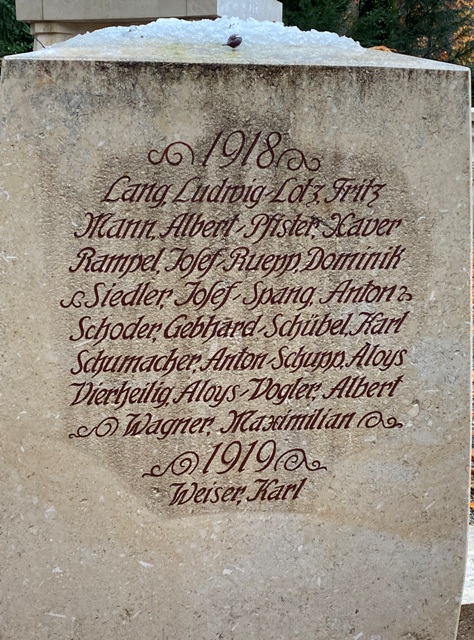 1918
Lang, Ludwig-Lotz, Fritz
Mann, Albert-Pfister, Xaver
Rampel, Josef-Ruepp, Dominik
Siedler, Josef-Spang, Anton
Schoder, Gebhard-Schübel, Karl
Schumacher, Anton-Schupp, Aloys
Vierheilig, Aloys-Vogler, Albert
Wagner, Maximilian
1919
Weiser, Karl